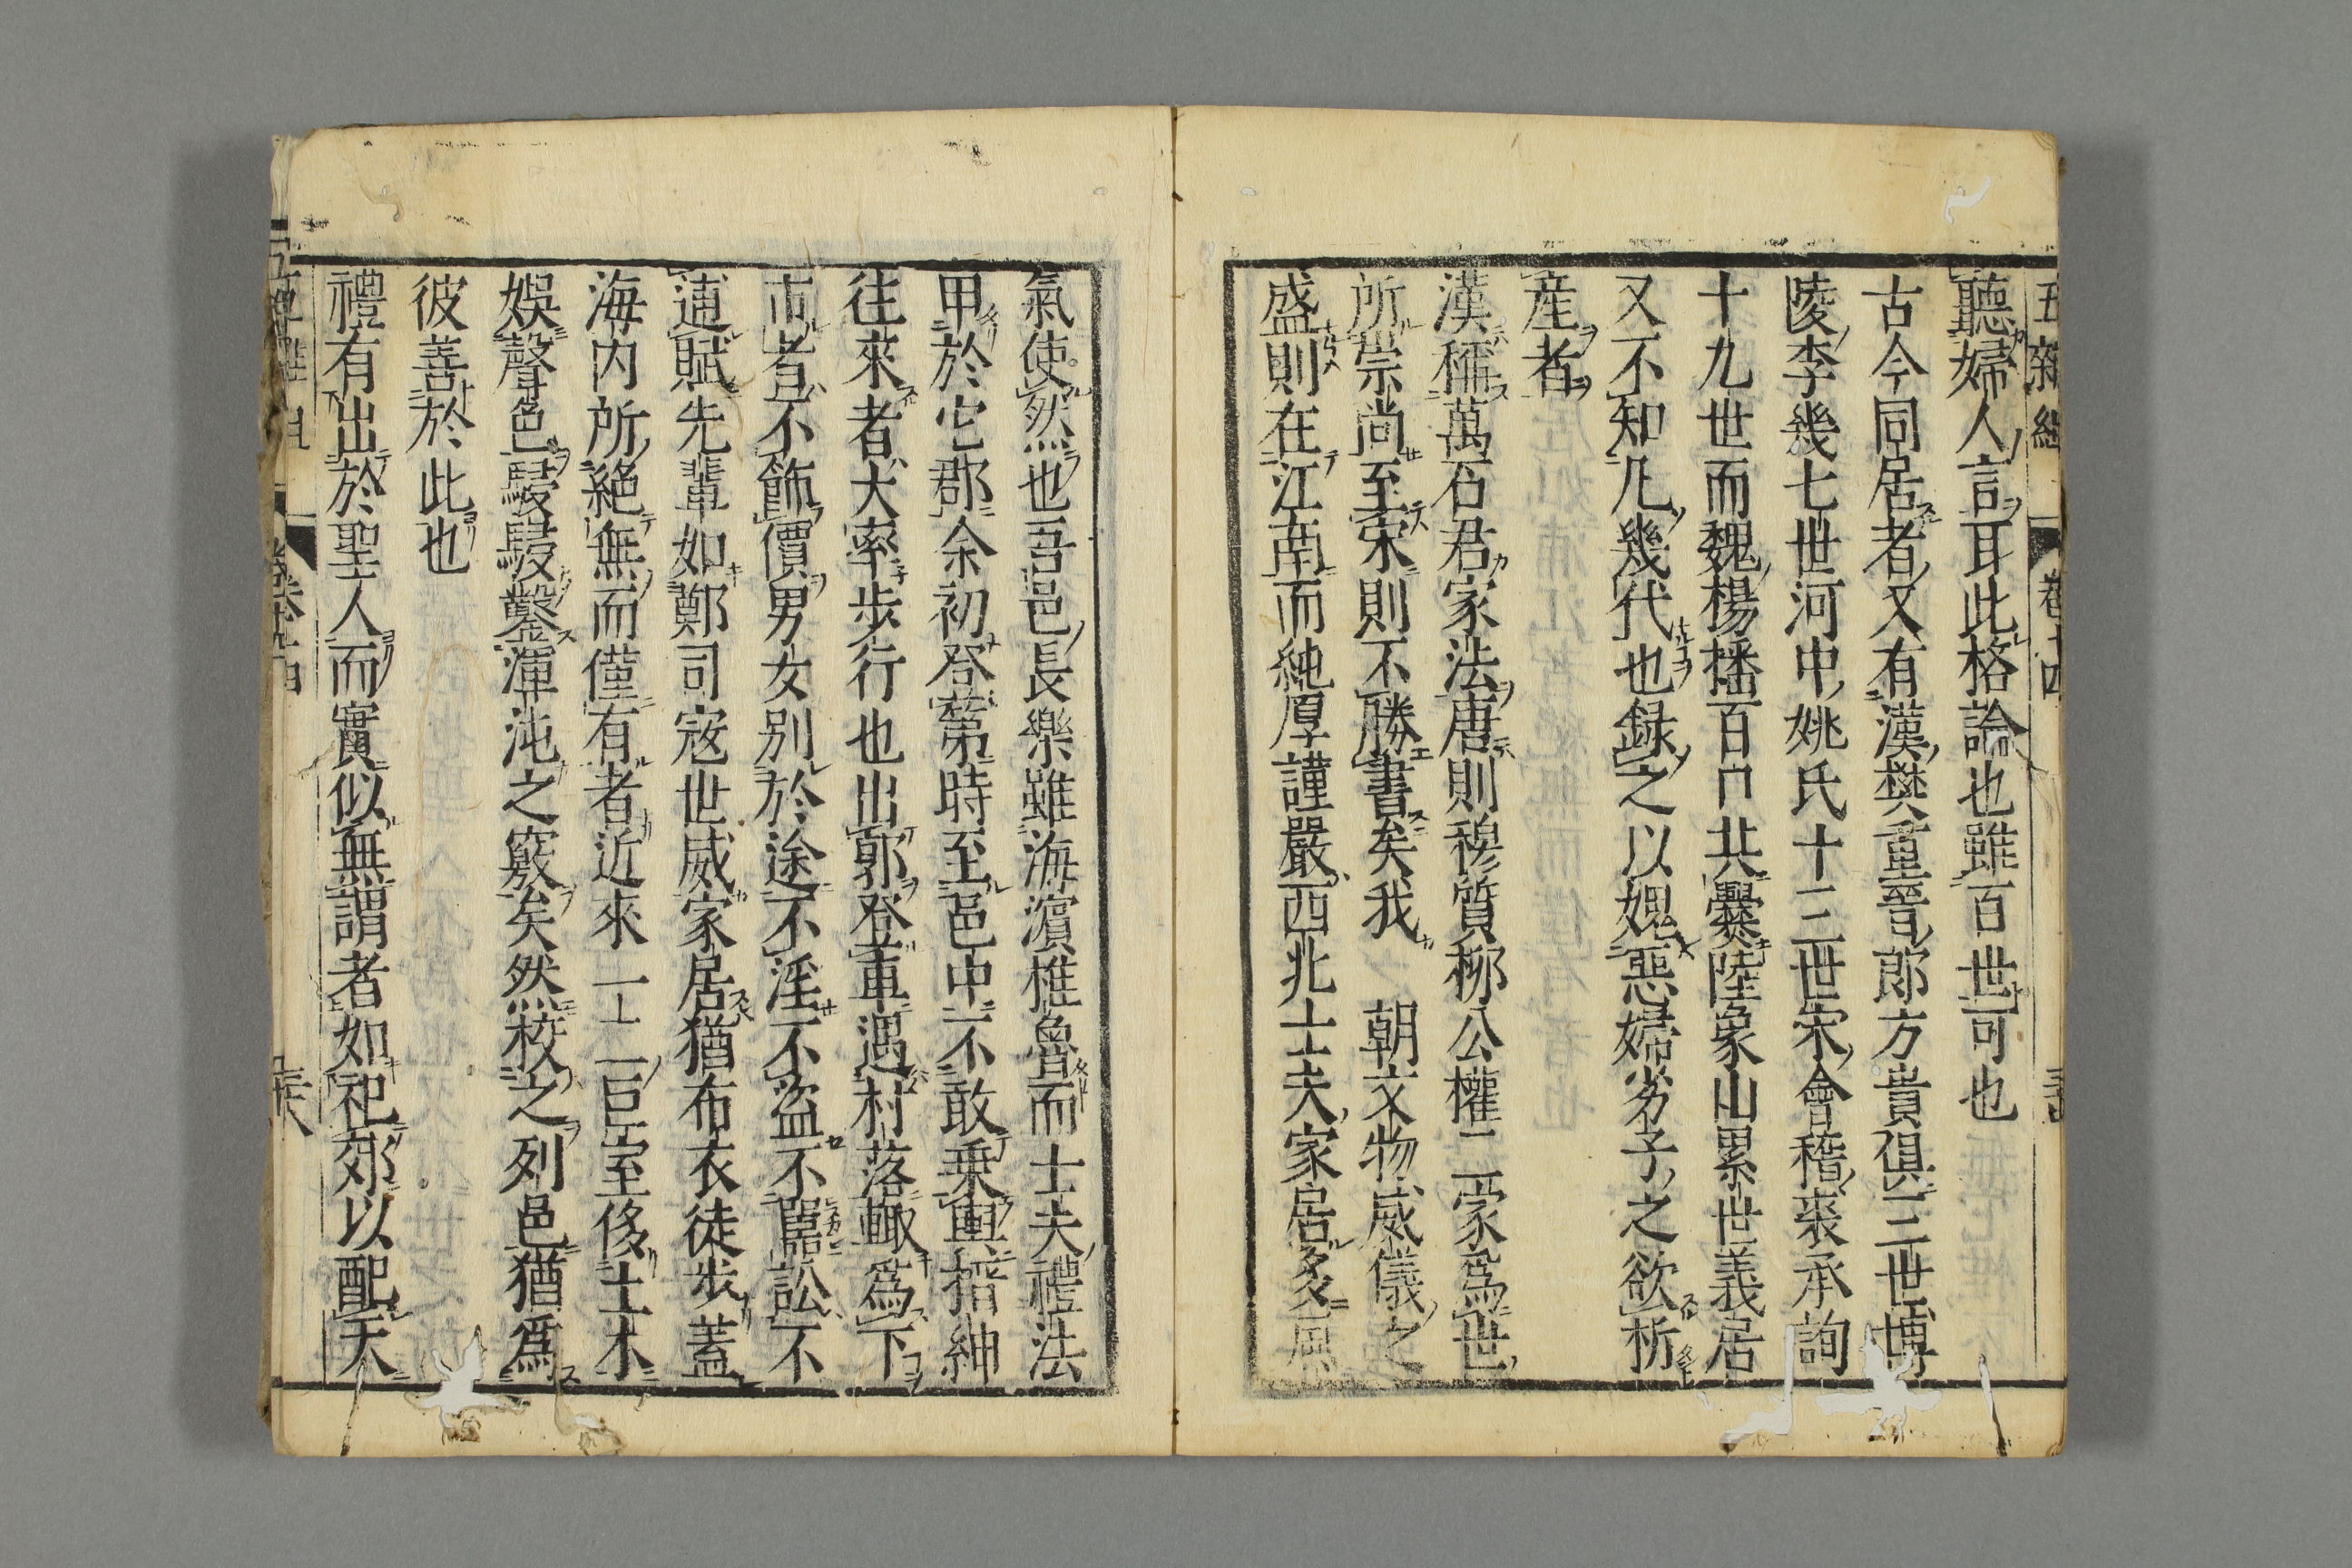 五雜組 卷十四
聽婦人言耳此格論也雖百世可也
古今同居者又有漢樊重晉郎方貴俱三世博
陵李幾七世河中姚氏十三世宋會稽裘承詢
十九世而魏楊播百口共爨陸象山累世義居
又不知凡幾代也録之以媿惡婦劣子之欲析
産者
漢稱萬石君家法唐則穆質柳公權二家爲世
所崇尚至宋則不勝書矣我 朝文物威儀之
盛則在江南而純厚謹嚴西北士夫家居多風
氣使然也吾邑長樂雖海濵椎魯而士夫禮法
甲於它郡余初登第時至邑中不敢乗輿搢紳
往來者大率步行也出郭登車遇村落輙爲下
市者不飾價男女别於途不淫不盜不嚚訟不
逋賦先輩如鄭司寇世威家居猶布衣徒步蓋
海内所絶無而僅有者近來一二巨室侈土木
娯聲色駸駸鑿渾沌之竅矣然校之列邑猶爲
彼善於此也
禮有出於聖人而實似無謂者如祀郊以配天
卷十四